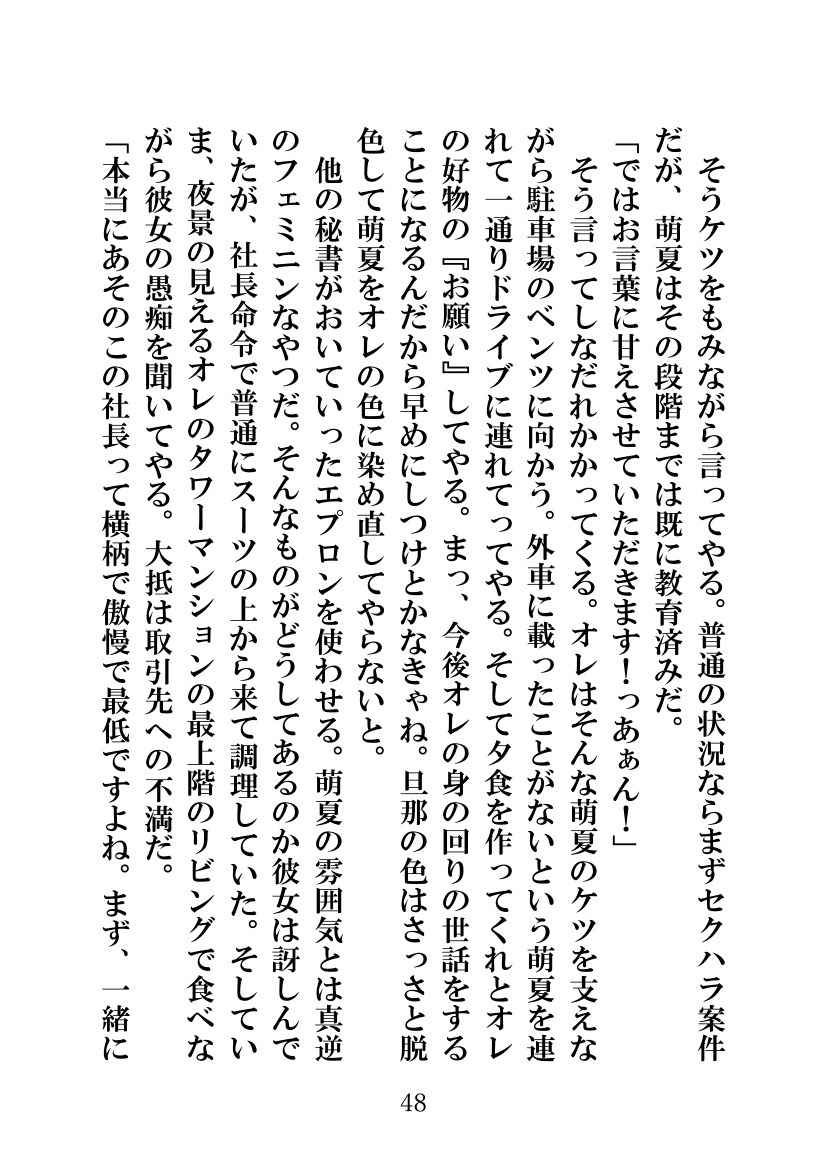 そうケツをもみながら言ってやる。普通の状況ならまずセクハラ案件
だが、萌夏はその段階までは既に教育済みだ。
「ではお言葉に甘えさせていただきます！っあぁん！」
そう言ってしなだれかかってくる。オレはそんな萌夏のケツを支えな
がら駐車場のベンツに向かう。外車に載ったことがないという萌夏を連
れて一通りドライブに連れてってやる。そして夕食を作ってくれとオレ
の好物の『お願い』してやる。まっ、今後オレの身の回りの世話をする
ことになるんだから早めにしつけとかなきゃね。旦那の色はさっさと脱
色して萌夏をオレの色に染め直してやらないと。
他の秘書がおいていったエプロンを使わせる。萌夏の雰囲気とは真逆
のフェミニンなやつだ。そんなものがどうしてあるのか彼女は訝しんで
いたが、社長命令で普通にスーツの上から来て調理していた。そしてい
ま、夜景の見えるオレのタワーマンションの最上階のリビングで食べな
がら彼女の愚痴を聞いてやる。大抵は取引先への不満だ。
「本当にあそのこの社長って横柄で傲慢で最低ですよね。まず、一緒に
48